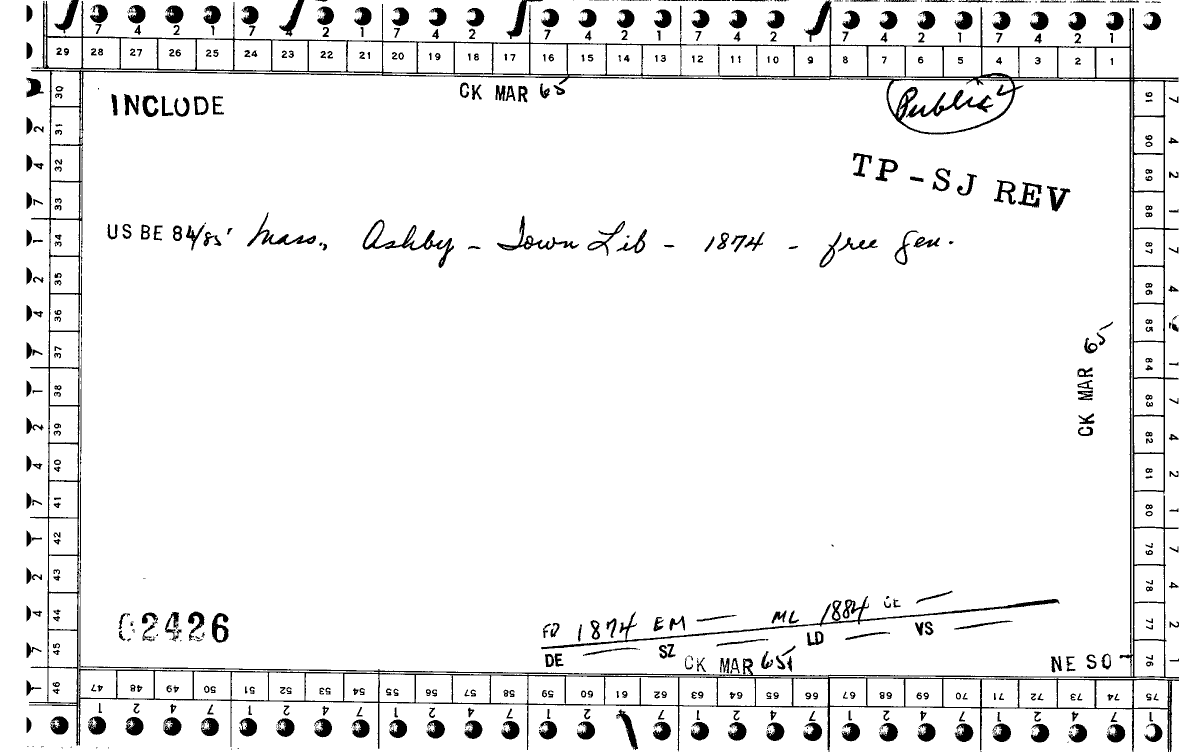 7 4 2 1 7 4 2 1 7 4 2 7 4 2 1 7 4 2 1 7 4 2 1 7 4 2 1
29 28 27 26 25 24 23 22 21 20 19 18 17 16 15 14 13 12 11 10 9 8 7 6 5 4 3 2 1
CK MAR 65
INCLUDE
Public
TP-SJ REV
US BE 84/85' Mass., Ashby - Town Lib - 1874 - free gen.
CK MAR 65
02426
FD 1874 EM — ML 1884 CE —
DE — SZ — LD — VS —
CK MAR 65
NE SO
30 31 32 33 34 35 36 37 38 39 40 41 42 43 44 45 46
2 4 7 1 2 4 7 1 2 4 7 1 2 4 7 1
91 90 89 88 87 86 85 84 83 82 81 80 79 78 77 76
7 4 2 1 7 4 2 1 7 4 2 1 7 4 2 1
47 48 49 50 51 52 53 54 55 56 57 58 59 60 61 62 63 64 65 66 67 68 69 70 71 72 73 74 75
1 2 4 7 1 2 4 7 1 2 4 7 1 2 4 7 1 2 4 7 1 2 4 7 1 2 4 7 1